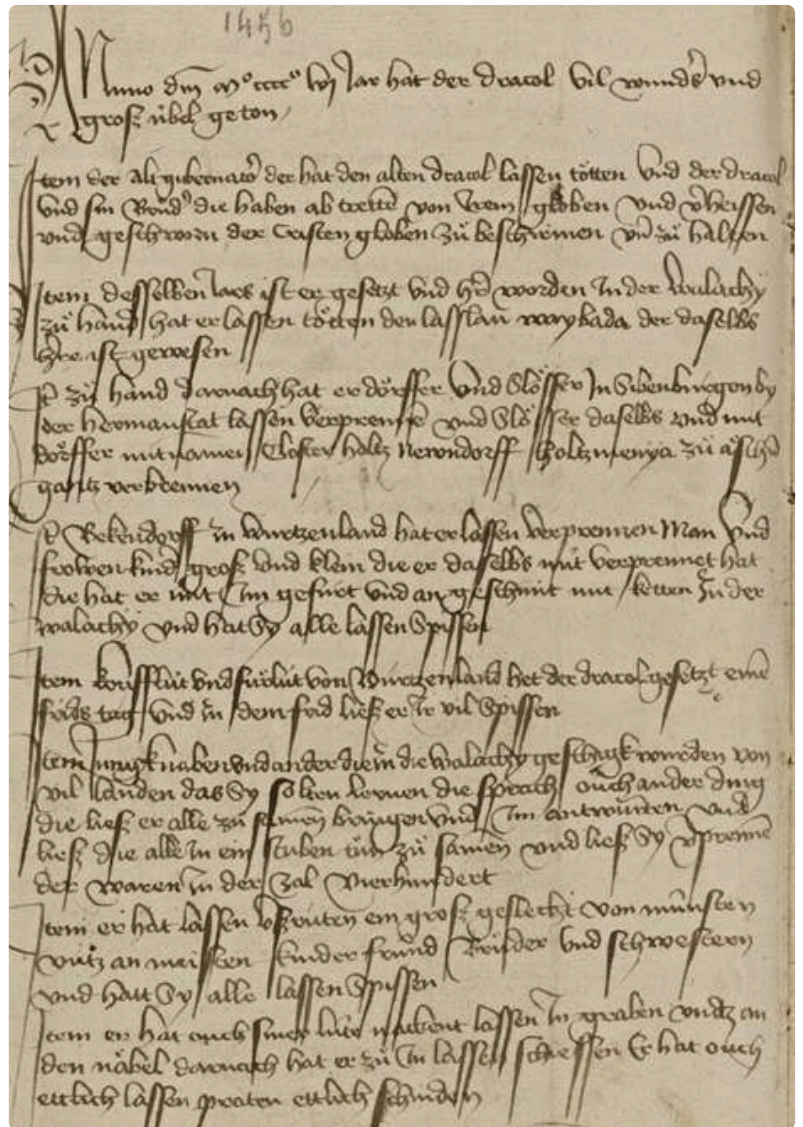 1456
Anno dm mº ccccº lvj Jar hat der dracol vil wunds vnd
groß übel geton
Item der alt gubernator der hat den alten dracol lassen tötten Vnd der dracol
Vnd sin Brůd die haben ab trette von Jrem globen Vnd vheissen
vnd geschworn den Cristen globen zů beschirmen vn zů halten
Item desselben Jars ist er gesetzt vnd hr worden Jn der walachy
zů hand hat er lassen tötten den lasslau waybada der daselbs
hre ist gewesen
It zů hand darnach hat er dörffer vnd Slösser Jn Sibenburgen by
der hermanstat lassen verprenne vnd Slösser daselbs vnd mit
dörffer mit namen Closter holtz Newndorff holtzmenya zů äschen
gantz verbrennen
It Bekendorff Jn wurtzenland hat er lassen verprennen Man Vnd
frowen kind groß vnd klein die er daselbs nit verprennet hat
die hat er mit Jm gefürt vnd an geschmit mit ketten Jn der
walachy vnd hat Sy alle lassen Spissen
Item koufflüt vnd fürlüt von Wurtzenland het der dracol gesetzt eine
frids tag vnd Jn dem frid ließ er Jr vil Spissen
Item Jung knaben vnd ander die Jn die walachy geschigkt wurden von
vil landen das Sy solten lernen die sprach ouch ander ding
die ließ er alle zů samen bringen vnd Jm antwürten vnd
ließ die alle Jn ein stuben tůn zů samen vnd ließ Sy vprenne
der waren Jn der Zal vierhundert
Item er hat lassen vßrüten ein groß geslecht von minsten
vntz an maisten kinder fründ Brüder vnd schwestern
vnd hatt Sy alle lassen Spissen
Item er hat ouch siner lüte nackent lassen Jn graben vntz an
den näbel darnach hat er zů Jn lassen schiessen Er hat ouch
ettlich lassen praten ettlich schinden